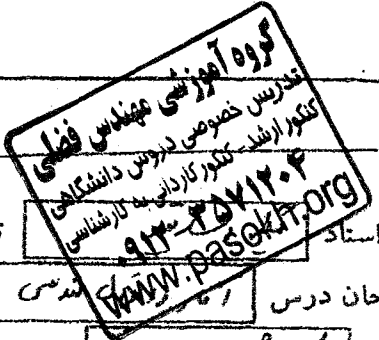 گروه آموزشی مهندس فضلی
تدریس خصوصی دروس دانشگاهی
کنکور ارشد - کنکور کاردانی به کارشناسی
۰۹۱۲-۳۵۷۱۲۰۴
www.pasokh.org
استاد
حان درس